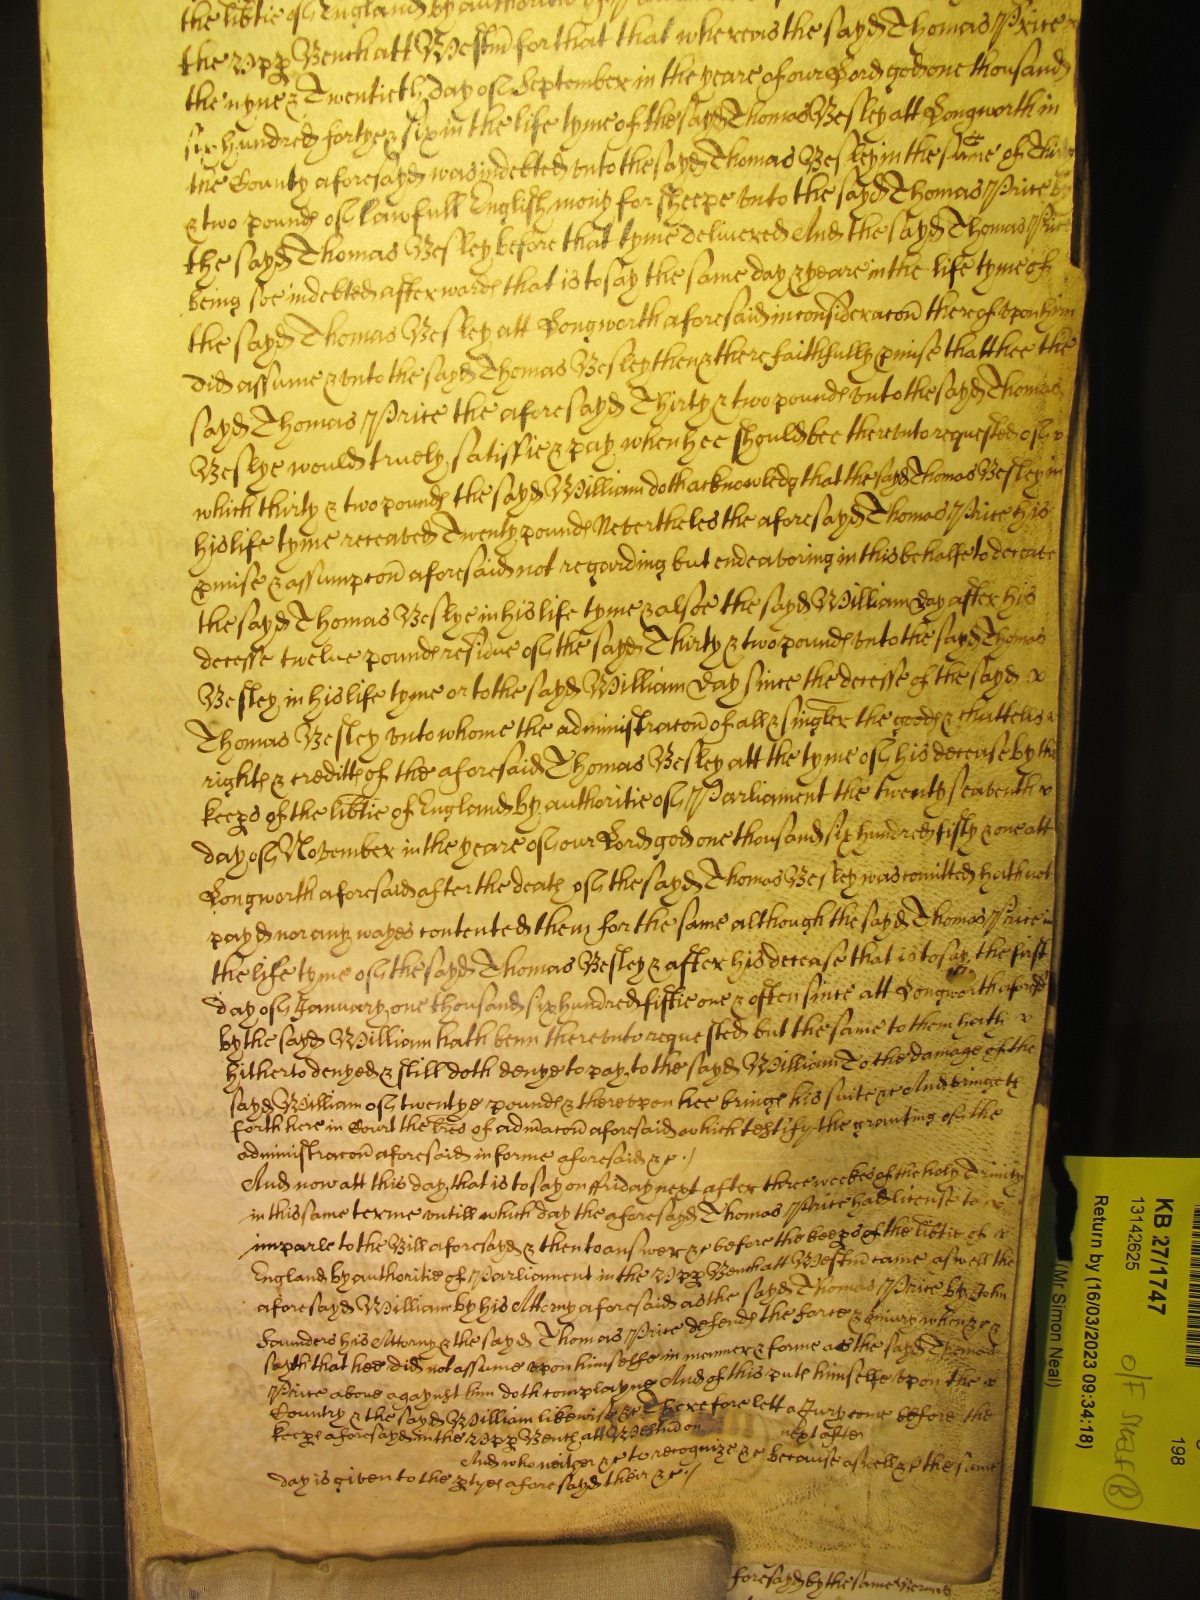 the lib̃tie of England by authoritie of
the upp Bench att Westm̃ for that that whereas the sayd Thomas Price
the nyne & Twentieth day of September in the yeare of our Lord god one thousand
six hundred fortye & six in the life tyme of the sayd Thomas Besley att Longworth in
the County aforesayd was indebted unto the sayd Thomas Besley in the sum̃e of Thirty
& two pound of lawfull English mony for sheepe unto the sayd Thomas Price by
the sayd Thomas Besley before that tyme delivered And the sayd Thomas Price
being soe indebted afterward that is to say the same day & yeare in the life tyme of
the sayd Thomas Besley att Longworth aforesaid in consideracon̄ thereof upon him
did assume & unto the sayd Thomas Besley then & there faithfully pmise that hee the
sayd Thomas Price the aforesayd Thirty & two pound unto the sayd Thomas
Beslye would truely satisfie & pay when hee should bee thereunto requested of
which thirty & two pound the sayd William doth acknowledg that the sayd Thomas Besley in
his life tyme receaved Twenty pound Nevertheles the aforesayd Thomas Price his
pmise & assumpcon̄ aforesaid not regarding but endeavoring in this behalfe to deceave
the sayd Thomas Beslye in his life tyme & alsoe the sayd William Day after his
decesse twelve pound residue of the sayd Thirty & two pound unto the sayd Thomas
Besley in his life tyme or to the sayd William Day since the decesse of the sayd
Thomas Besley unto whome the administracon̄ of all & singler the good & chattells
right & creditt of the aforesaid Thomas Besley att the tyme of his decease by the
keeps of the lib̃tie of England by authoritie of Parliament the twenty seaventh
day of November in the yeare of our Lord god one thousand six hundred fifty & one att
Longworth aforesaid after the death of the sayd Thomas Besley was comitted hath not
payd nor any wayes contented them for the same although the sayd Thomas Price in
the life tyme of the sayd Thomas Besley & after his decease that is to say the first
day of January one thousand six hundred fiftie one & often since att Longworth aforesd
by the sayd William hath benn thereunto requested but the same to them hath
hitherto denyed & still doth denye to pay to the sayd William To the damage of the
sayd William of twentye pound & thereupon hee bring his suite &c And bringeth
forth here in Court the l̃res of adm̃acon̄ aforesaid which testify the granting of the
administracon̄ aforesaid in forme aforesaid &c
And now att this day that is to say on ffriday next after three weekes of the holy Trinity
in this same terme untill which day the aforesayd Thomas Price had license to
imparle to the Bill aforesayd & then to answer &c before the keeps of the lib̃tie of
England by authoritie of Parliament in the upp Bench att Westm̃ came aswell the
aforesayd William by his Attorny aforesaid as the sayd Thomas Price by John
Saunders his Attorny & the sayd Thomas Price defend the force & iniury when &c &
sayth that hee did not assume upon himselfe in manner & forme as the sayd Thomas
Price above agaynst him doth complayne And of this putt himselfe upon the
Country & the sayd William likewise &c Therefore lett a Jury come before the
keeps aforesayd in the upp Bench att Westm̃ on next after
And who neither &c to recognize &c because aswell &c the same
day is given to the ptyes aforesayd there &c
foresayd by the same
KB 27/1747
13142625
Return by (16/03/2023 09:34:18)
(Mr Simon Neal)
198
O/F Staff (R)